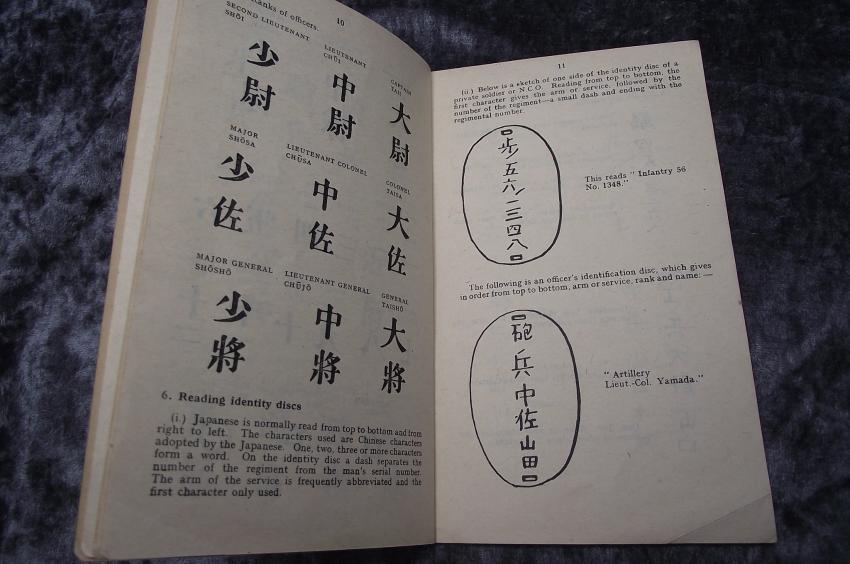 ranks of officers.
10
SECOND LIEUTENANT
SHŌI
少尉
LIEUTENANT
CHŪI
中尉
CAPTAIN
TAII
大尉
MAJOR
SHŌSA
少佐
LIEUTENANT COLONEL
CHŪSA
中佐
COLONEL
TAISA
大佐
MAJOR GENERAL
SHŌSHŌ
少將
LIEUTENANT GENERAL
CHŪJŌ
中將
GENERAL
TAISHŌ
大將
6. Reading identity discs
(i.) Japanese is normally read from top to bottom and from
right to left. The characters used are Chinese characters
adopted by the Japanese. One, two, three or more characters
form a word. On the identity disc a dash separates the
number of the regiment from the man's serial number.
The arm of the service is frequently abbreviated and the
first character only used.
11
(ii.) Below is a sketch of one side of the identity disc of a
private soldier or N.C.O. Reading from top to bottom, the
first character gives the arm or service, followed by the
number of the regiment—a small dash and ending with the
regimental number.
步五六/一三四八
This reads "Infantry 56
No. 1348."
The following is an officer's identification disc, which gives
in order from top to bottom, arm or service, rank and name:—
砲兵中佐山田
"Artillery
Lieut.-Col. Yamada."